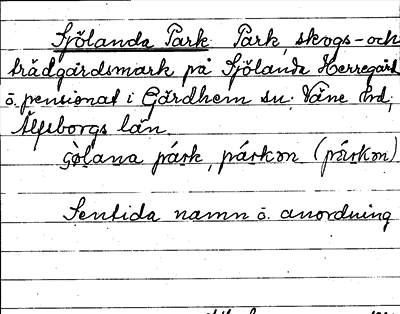 Sjölanda Park Park, skogs- och
trädgårdsmark på Sjölanda Herregård
o. pensionat i Gärdhem sn. Väne hd,
Älfsborgs län.
park, parkon (parkon)
Sentida namn o. anordning